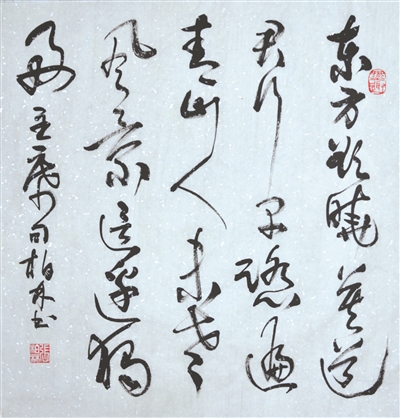 东方欲晓莫道
君行早踏遍
青山人未老
风景这边独
好
主席句柏林书